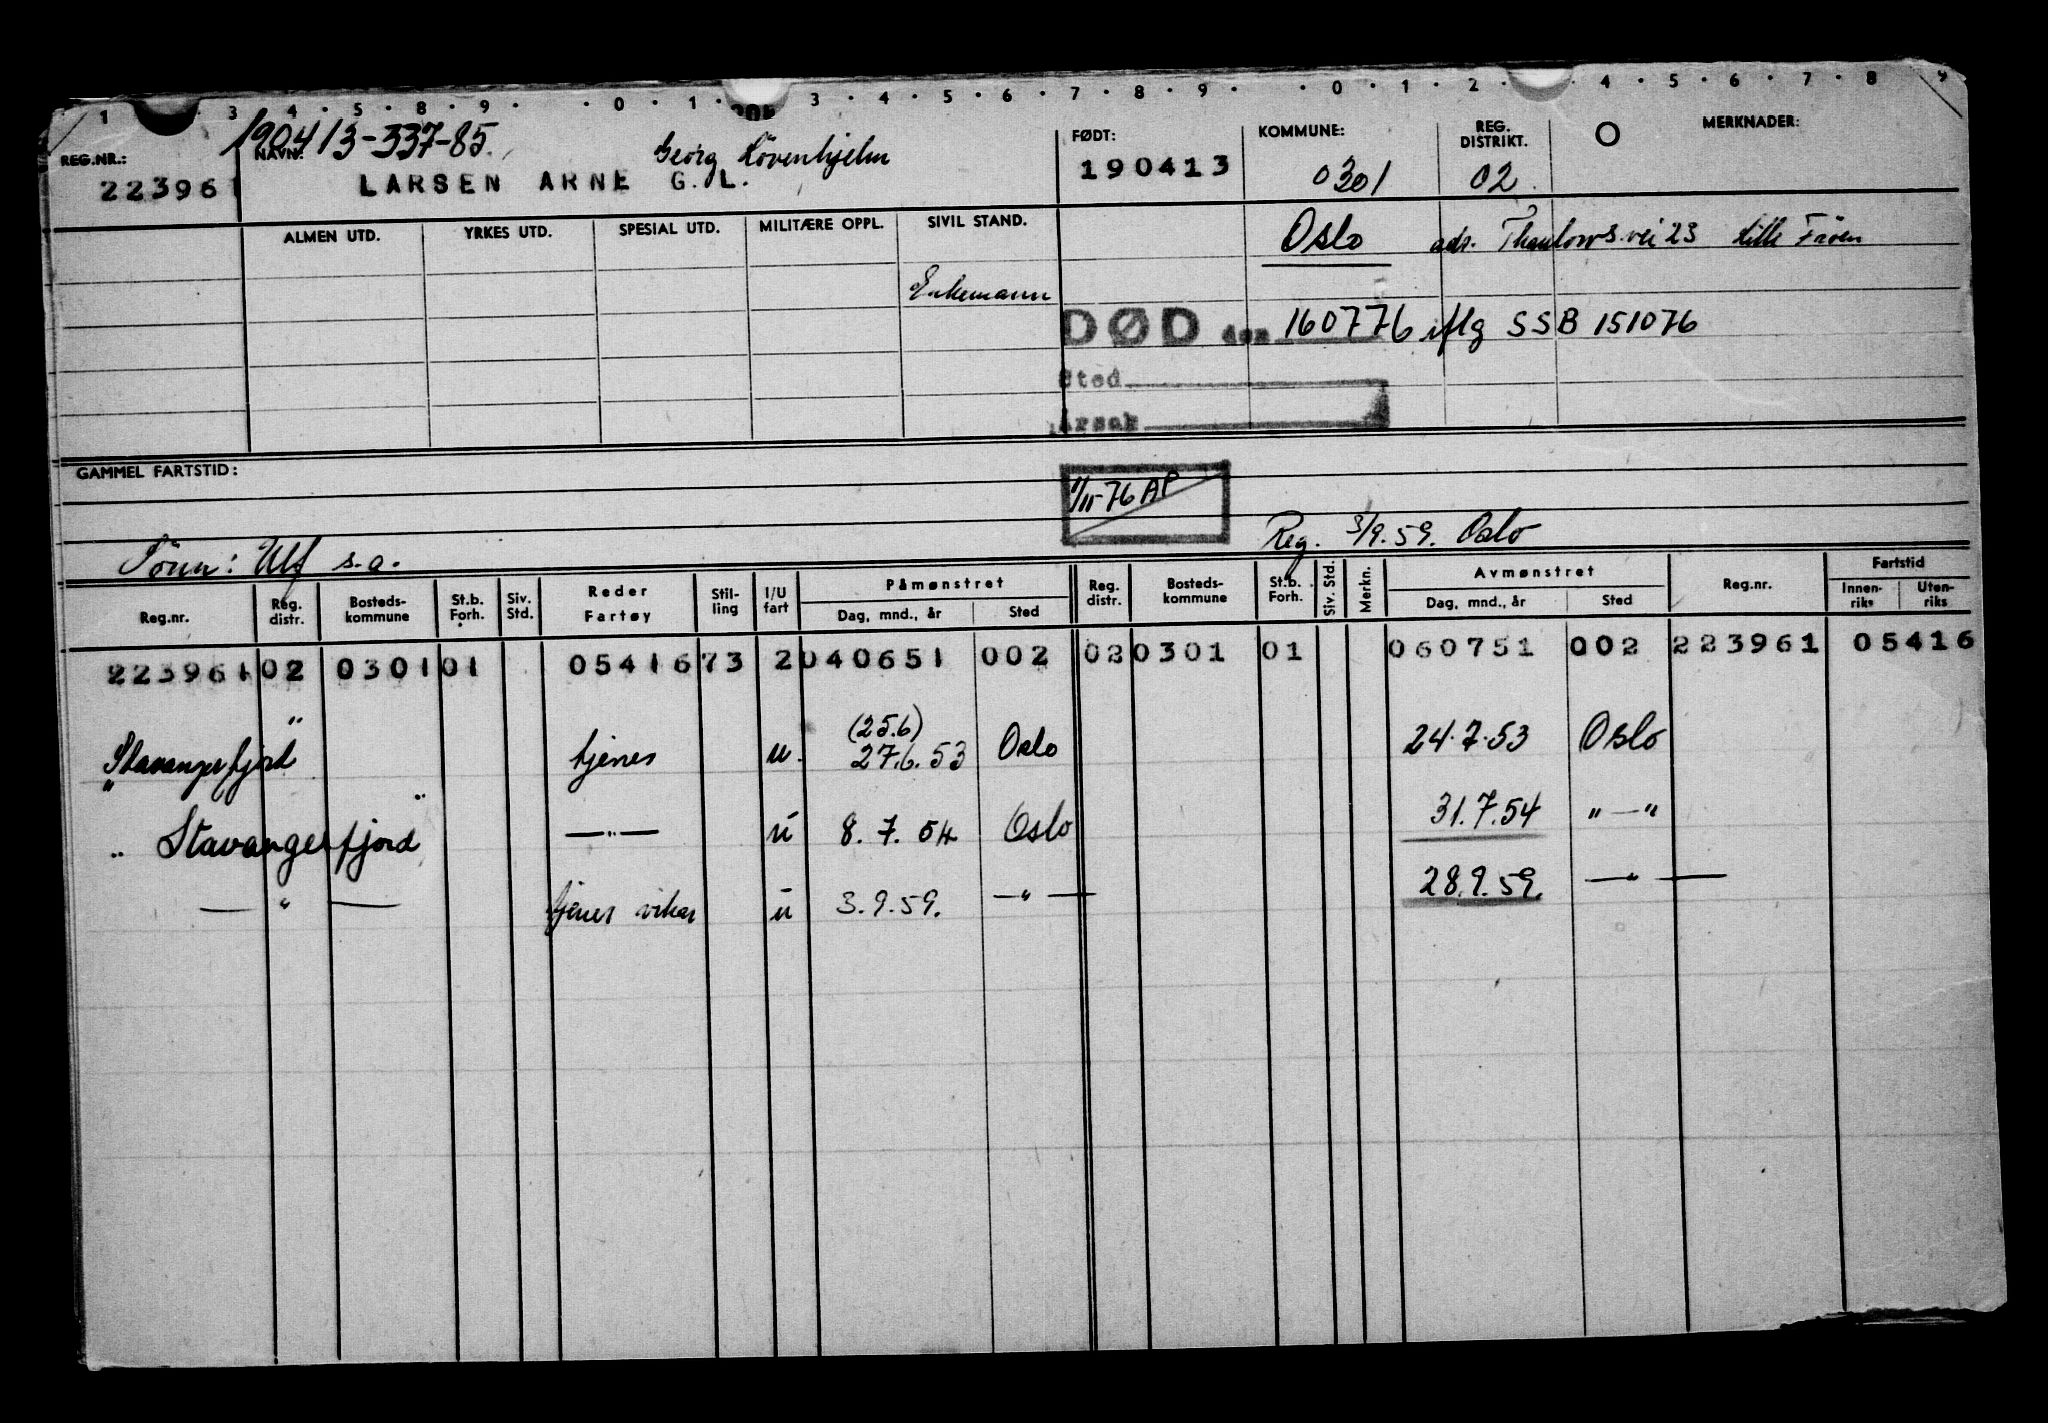 1 · 3 · 4 · 5 · 8 · 9 · · 0 · 1 · 3 · 4 · 5 · 6 · 7 · 8 · 9 · · 0 · 1 · 2 · 4 · 5 · 6 · 7 · 8 · 9
190413-337-85.
REG.NR.: NAVN: Georg Lövenhjelm FØDT: KOMMUNE: REG. DISTRIKT. MERKNADER:
223961 LARSEN ARNE G. L. 190413 0301 02
ALMEN UTD. YRKES UTD. SPESIAL UTD. MILITÆRE OPPL. SIVIL STAND. Oslo adr. Thaulows vei 23 Lille Frøen
Enkemann
DØD den 160776 iflg SSB 151076
Sted
Årsak
GAMMEL FARTSTID:
1/11-76 AP
Sönn: Ulf s.a. Reg. 3/9.59. Oslo
Reg.nr. Reg. distr. Bosteds- kommune St.b. Forh. Siv. Std. Reder Fartøy Stil- ling I/U fart Påmønstret Dag, mnd., år Sted Reg. distr. Bosteds- kommune St.b. Forh. Siv. Std. Merkn. Avmønstret Dag, mnd., år Sted Reg.nr. Fartstid Innen- riks Uten- riks
223961 02 0301 01 05416 73 2 040651 002 02 0301 01 060751 002 223961 05416
(25.6)
"Stavangerfjord" tjener u. 27.6.53 Oslo 24.7.53 Oslo
"Stavangerfjord" —"— u 8.7.54 Oslo 31.7.54 "—"
— " — tjener vikar u 3.9.59. —"— 28.9.59. —"—